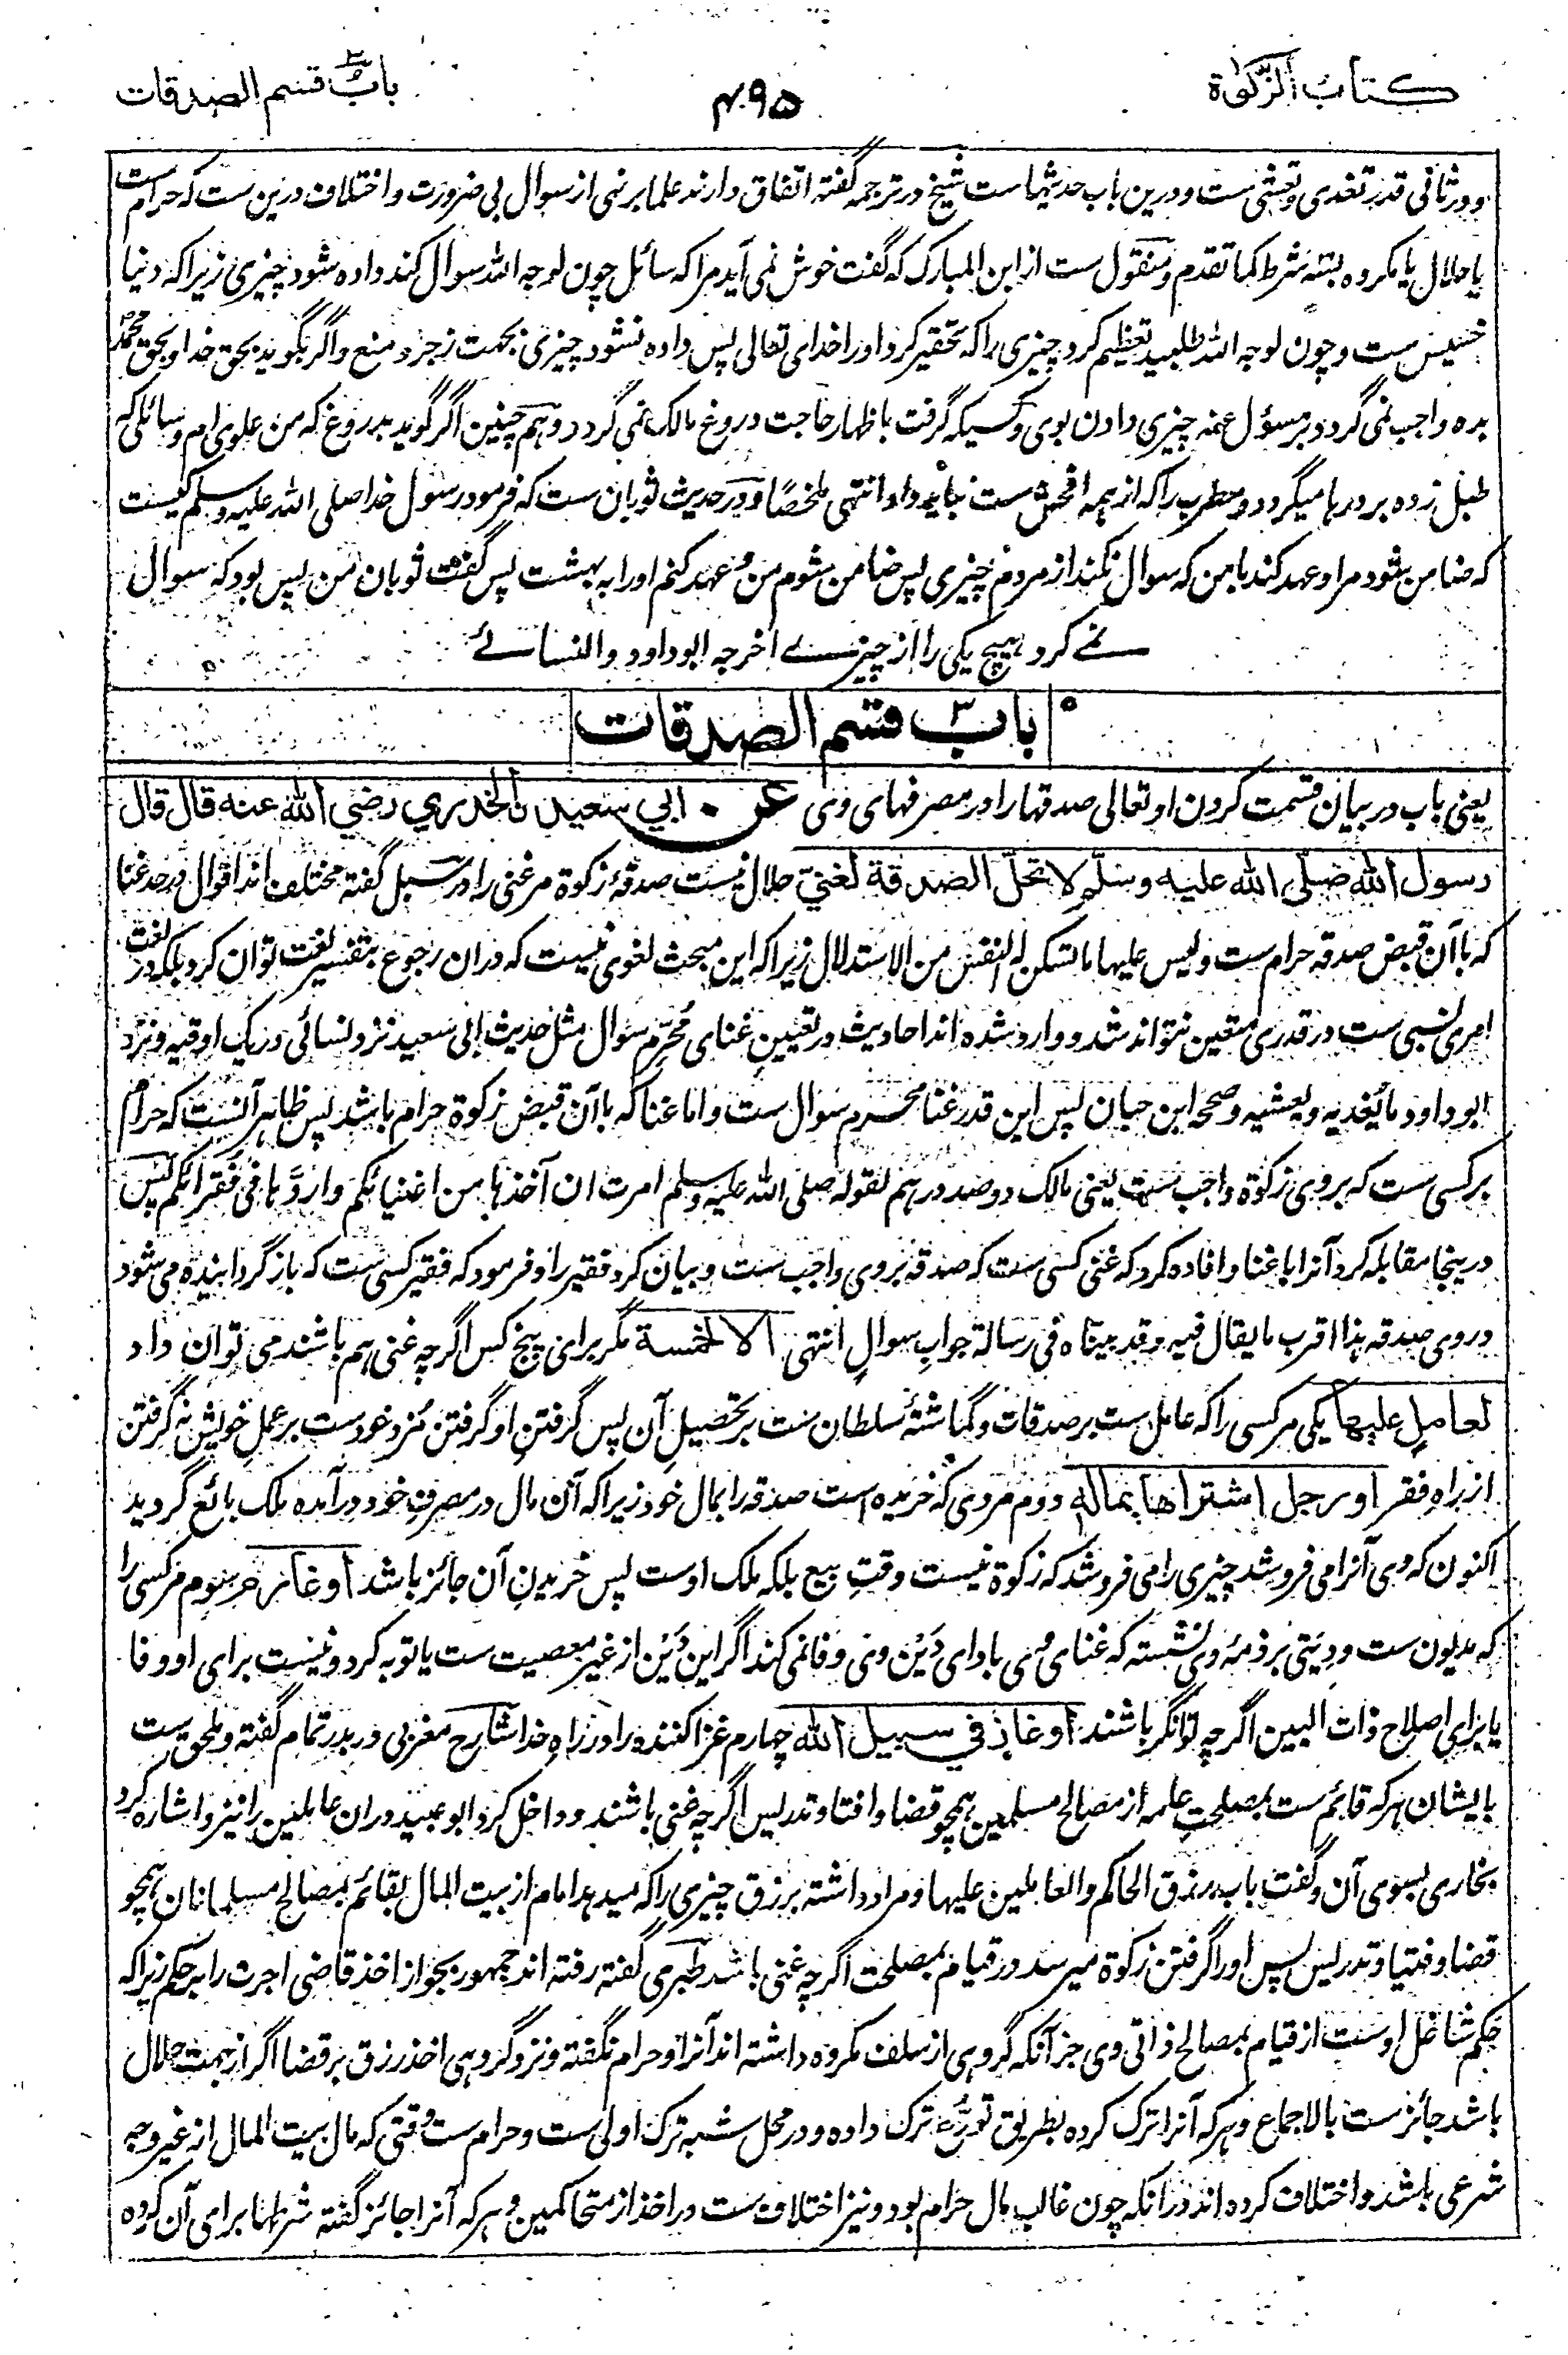 كتاب الزكوة
۴۹۵
باب ۳ قسم الصدقات
و در ثانی قدر تغدی و تعشی ست و درین باب حدیثهاست شیخ در ترجمه گفته اتفاق دارند علما بر نهی از سوال بی ضرورت و اختلاف درین ست که حرام ست
یا حلال یا مکروه بسه شرط کما تقدم و منقول ست از ابن المبارک که گفت خوش نمی آید مرا که سائل چون لوجه الله سوال کند داده شود چیزی زیرا که دنیا
خسیس ست و چون لوجه الله طلبید تعظیم کرد چیزی را که تحقیر کرد او را خدای تعالی پس داده نشود چیزی بجهت زجر و منع و اگر بگوید بحق خدا و بحق محمد
بده واجب نمی گردد بر مسؤل عنه چیزی دادن بوی و کسیکه گرفت باظهار حاجت دروغ مالک نمی گردد و هم چنین اگر گوید بدروغ که من علوی ام و سائلی که
طبل زده بر درها میگردد و مطرب را که از همه افحش ست نباید داد انتهی ملخصًا و در حدیث ثوبان ست که فرمود رسول خدا صلی الله علیه وسلم کیست
که ضامن شود مرا و عهد کند با من که سوال نکند از مردم چیزی پس ضامن شوم من و عهد کنم او را به بهشت پس گفت ثوبان من پس بود که سوال
نمے کرد هیچ یکی را از چیزے اخرجه ابوداود والنسائے
باب ۳ قسم الصدقات
یعنی باب در بیان قسمت کردن او تعالی صدقها را در مصرفهای وی عن ابي سعيد ن الخدري رضي الله عنه قال قال
رسول الله صلّى الله عليه وسلّم لا تحلّ الصدقة لغنيّ حلال نیست صدقهٔ زکوة مر غنی را در سبل گفته مختلف اند اقوال در حد غنا
که با آن قبض صدقه حرام ست و لیس علیها ما تسکن له النفس من الاستدلال زیرا که این مبحث لغوی نیست که در ان رجوع بتفسیر لغت توان کرد بلکه در لغت
امری نسبی ست در قدری متعین نتواند شد و وارد شده اند احادیث در تعیینِ غنای مُحرّم سوال مثل حدیث ابی سعید نزد نسائی در یک اوقیه و نزد
ابوداود ما یُغدیه و یعشیه و صححه ابن حبان پس این قدر غنا محرم سوال ست و اما غنا که با آن قبض زکوة حرام باشد پس ظاهر آنست که حرام
بر کسی ست که بروی زکوة واجب ست یعنی مالک دو صد درهم لقوله صلی الله علیه وسلم امرت ان آخذها من اغنیائکم و اردّها فی فقرائکم پس
درینجا مقابله کرد آنرا با غنا و افاده کرد که غنی کسی ست که صدقه بروی واجب ست و بیان کرد فقیر را و فرمود که فقیر کسی ست که باز گردانیده می شود
در وی صدقه هذا اقرب ما یقال فیه و قد بیناه فی رسالة جواب سوالٍ انتهی الا لخمسة مگر برای پنج کس اگرچه غنی هم باشند می توان داد
لعاملٍ عليها یکی مر کسی را که عامل ست بر صدقات و گماشتهٔ سلطان ست بر تحصیلِ آن پس گرفتنِ او گرفتن مزد خود ست بر عملِ خویش نه گرفتن
از راهِ فقر او رجل اشتراها بماله دوم مردی که خریده است صدقه را بمال خود زیرا که آن مال در مصرفِ خود در آمده ملک بائع گردید
اکنون که وی آنرا می فروشد چیزی را می فروشد که زکوة نیست وقتِ بیع بلکه ملک اوست پس خریدنِ آن جائز باشد او غارم سوم مر کسی را
که مدیون ست و دینی بر ذمهٔ وی نشسته که غنای وی با دای دَیْن وی وفا نمی کند اگر این دَیْن از غیر معصیت ست یا توبه کرد و نیست برای او وفا
یا برای اصلاح ذات البین اگرچه توانگر باشند او غاز في سبيل الله چهارم غزا کننده را در راهِ خدا شارح مغربی در بدر تمام گفته و ملحق ست
بایشان هر که قائم ست بمصلحتِ عامه از مصالح مسلمین همچو قضا و افتا و تدریس اگرچه غنی باشند و داخل کرد ابو عبید در ان عاملین را نیز و اشاره کرد
بخاری بسوی آن و گفت باب رزق الحاکم و العاملین علیها و مراد داشته برزق چیزی را که میدهد امام از بیت المال بقائم بمصالح مسلمانان همچو
قضا و فتیا و تدریس پس او را گرفتن زکوة میرسد در قیام بمصلحت اگرچه غنی باشد طبری گفته رفته اند جمهور بجواز اخذ قاضی اجرت را بر حکم زیرا که
حکم شاغل اوست از قیام بمصالح ذاتی وی جز آنکه گروهی از سلف مکروه داشته اند آنرا و حرام نگفته و نزد گروهی اخذ رزق بر قضا اگر از جهت حلال
باشد جائز ست بالاجماع و هر که آنرا ترک کرده بطریق تورُّع ترک داده و در محل شبه ترک اولی ست و حرام ست وقتی که مال بیت المال از غیر وجه
شرعی باشد و اختلاف کرده اند در آنکه چون غالب مال حرام بود و نیز اختلاف ست در اخذ از متحاکمین و هر که آنرا جائز گفته شرطها برای آن کرده